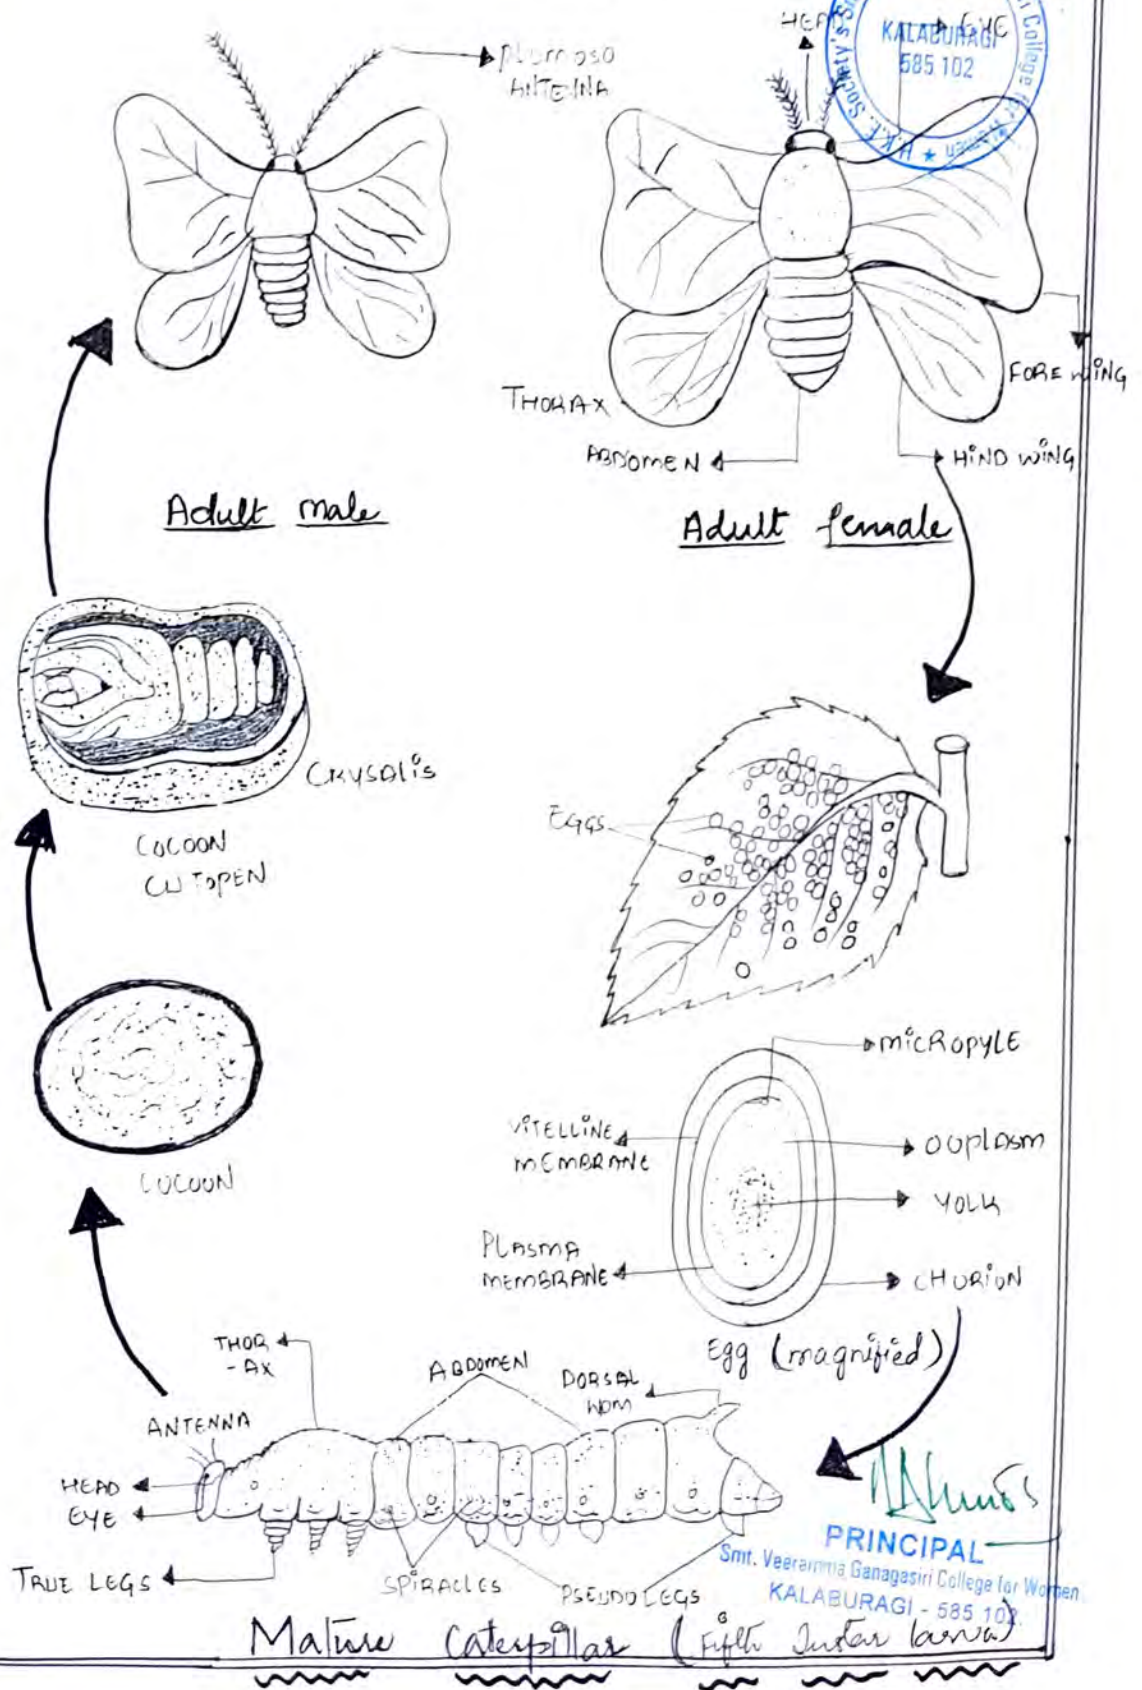 Plumoso
ANTENNA
HEAD
EYE
H.K.E. Society's
College for Women
KALABURAGI
585 102
THORAX
FORE WING
ABDOMEN
HIND WING
Adult male
Adult female
CRYSALIS
COCOON
CUTOPEN
EGGS
COCOON
MICROPYLE
VITELLINE
MEMBRANE
OOPLASM
YOLK
PLASMA
MEMBRANE
CHORION
Egg (magnified)
THOR
-AX
ABDOMEN
DORSAL
ANTENNA
HEAD
EYE
TRUE LEGS
SPIRACLES
PSEUDOLEGS
PRINCIPAL
Smt. Veeramma Gangasiri College for Women
KALABURAGI - 585 102.
Mature Caterpillar (Fifth Instar larva)